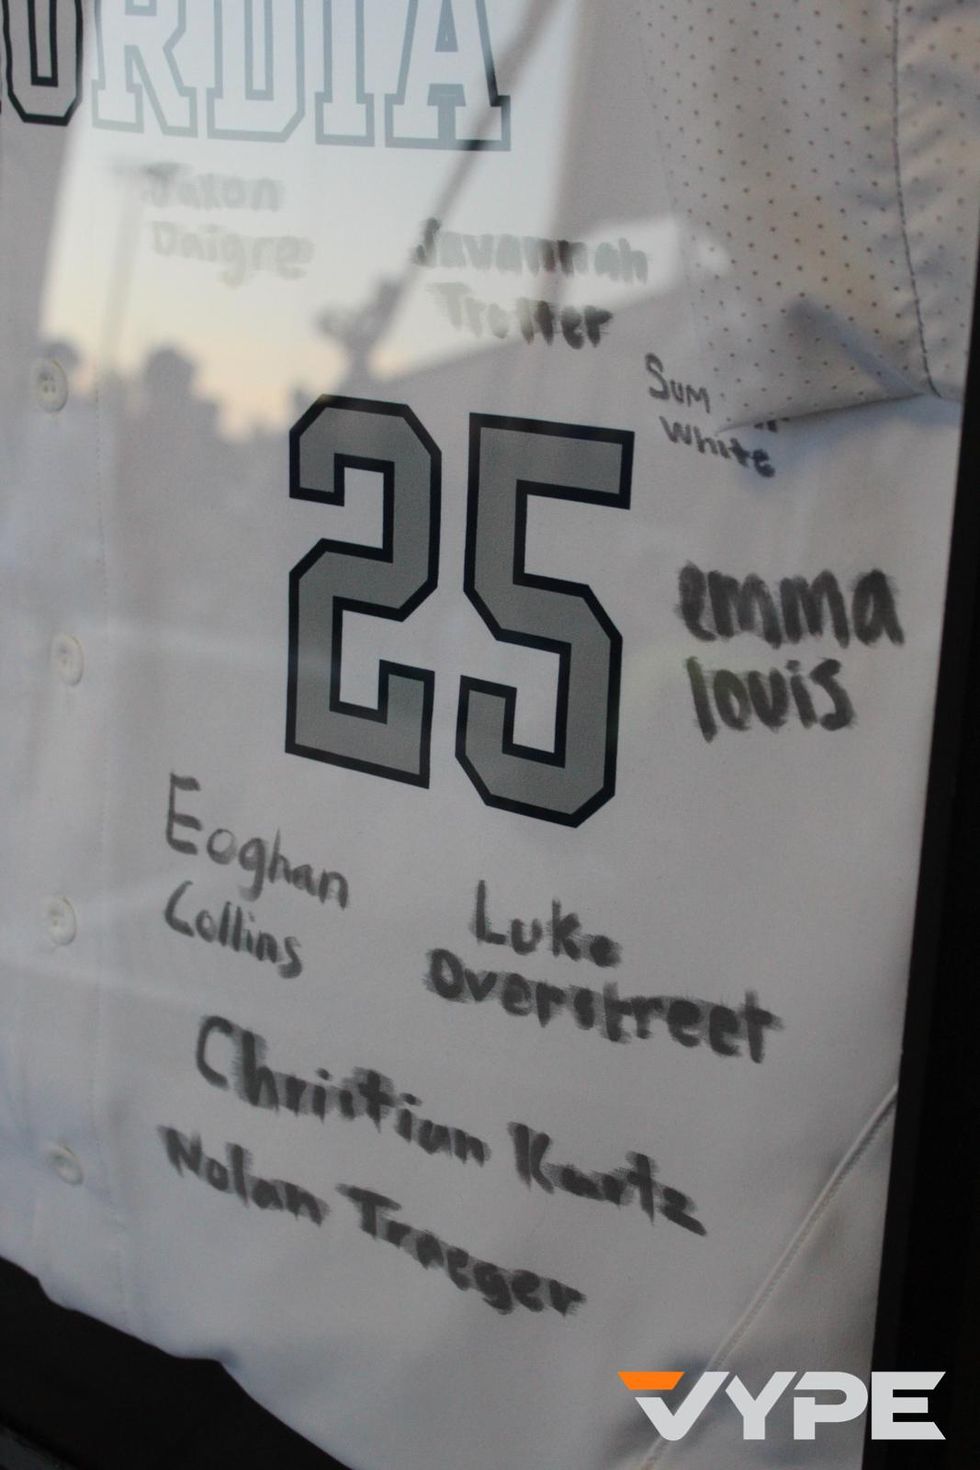 ORDIA
Jaxon
Daigre
Savannah
Trotter
Sum
White
25
emma
louis
Eoghan
Collins
Luke
Overstreet
Christian Kurtz
Nolan Traeger
VYPE